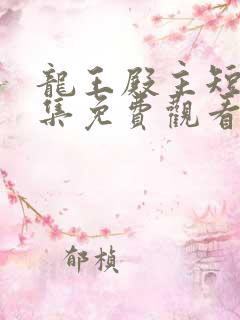 龍王殿主短
集免費觀看
郁楨